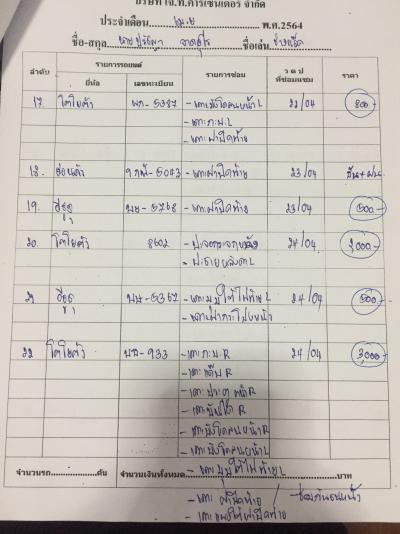 บริษัท เจ.ที.คาร์เซ็นเตอร์ จำกัด
ประจำเดือน เม.ย พ.ศ.2564
ชื่อ-สกุล นาย ชื่อเล่น
ลำดับ รายการรถยนต์ รายการซ่อม ว ด ป ที่ซ่อมแซม ราคา
ยี่ห้อ เลขทะเบียน
17. โตโยต้า ผก-5387 -เคาะบังโคลนหน้า L 22/04 800-
-เคาะ ก.ม. L
-เคาะฝาปิดท้าย
18. ฮอนด้า 9กฬ-5043 -เคาะฝาปิดท้าย 23/04
19. อีซูซุ บษ-5768 -เคาะฝาปิดท้าย 23/04 500-
20. โตโยต้า 8602 24/04 2,000-
21 อีซูซุ บห-5362 -เคาะมุมใต้ไฟท้าย L 24/04 500-
22 โตโยต้า บก-933 -เคาะ ก.ม. R 24/04 3,000-
-เคาะแก้ม R
-เคาะประตูหน้า R
-เคาะบันได R
-เคาะบังโคลนหน้า R
-เคาะบังโคลนหน้า L
จำนวนรถ คัน จำนวนเงินทั้งหมด บาท
-เคาะมุมใต้ไฟท้าย L
-เคาะ ฝาปิดท้าย / -ซ่อมกันชนหน้า